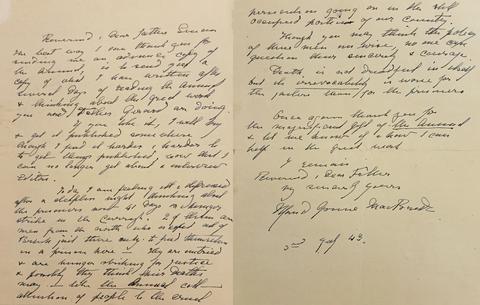 Reverend & Dear Father Simcox
The best way I can thank you for
sending me an advance copy of
the Annual, is to send you a
copy of what I have written after
several days of reading the Annual
& thinking about the great work
you and Father Girard are doing.
If you like it, I will try
& get it published somewhere
though I find it harder & harder
to get things published, now that I
can no longer get about & interview
Editors.
Today I am feeling all depressed
after a sleepless night thinking about
the prisoners now 41 Days on hunger
strike in the Curragh. 2 of them are
men from the north who escaped out of
British jail there only to find themselves
in a prison here — They are untried
& are hunger striking for justice
& possibly they think their Deaths
may — like the Annual call
attention of people to the cruel
persecution going on in the still
occupied portion of our Country.
Though you may think the policy
of these men unwise, no one can
question their sincerity & courage.
Death is not dreadful in itself
but its irrevocability is worse for
the jailers than for the prisoners
Once again thank you for
the magnificent gift of the Annual
& let me know if & how I can
help in the great work
I remain
Reverend & Dear Father
very sincerely yours
Maud Gonne MacBride
43.